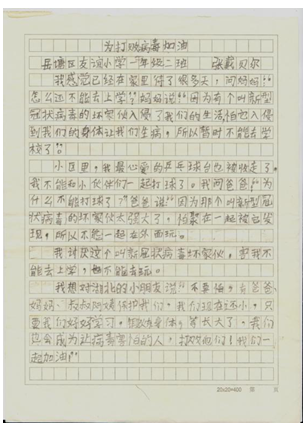 为打败病毒加油
岳塘区友谊小学一年级二班 张戴贝尔
我感觉已经在家里待了很多天，问妈妈“
怎么还不能去上学”妈妈说“因为有个叫新型
冠状病毒的坏家伙入侵了我们的生活怕也入侵
到我们的身体让我们生病，所以暂时不能去学
校了”
小区里，我最心爱的乒乓球台也被收走了。
我不能和小伙伴们一起打球了。我问爸爸“为
什么不能打球了？”爸爸说“因为那个叫新型冠
状病毒的坏家伙太强大了，怕聚在一起被它发
现，所以不能一起在外面玩。
我讨厌这个叫新冠状病毒坏家伙，害我不
能去上学，也不能去玩。
我想对湖北的小朋友说“不要怕，有爸爸
妈妈、叔叔阿姨保护我们，我们现在还小，只
要我们好好学习，锻炼身体，等长大了，我们
也会成为让病毒害怕的人，打败他们！我们一
起加油！”
20×20=400